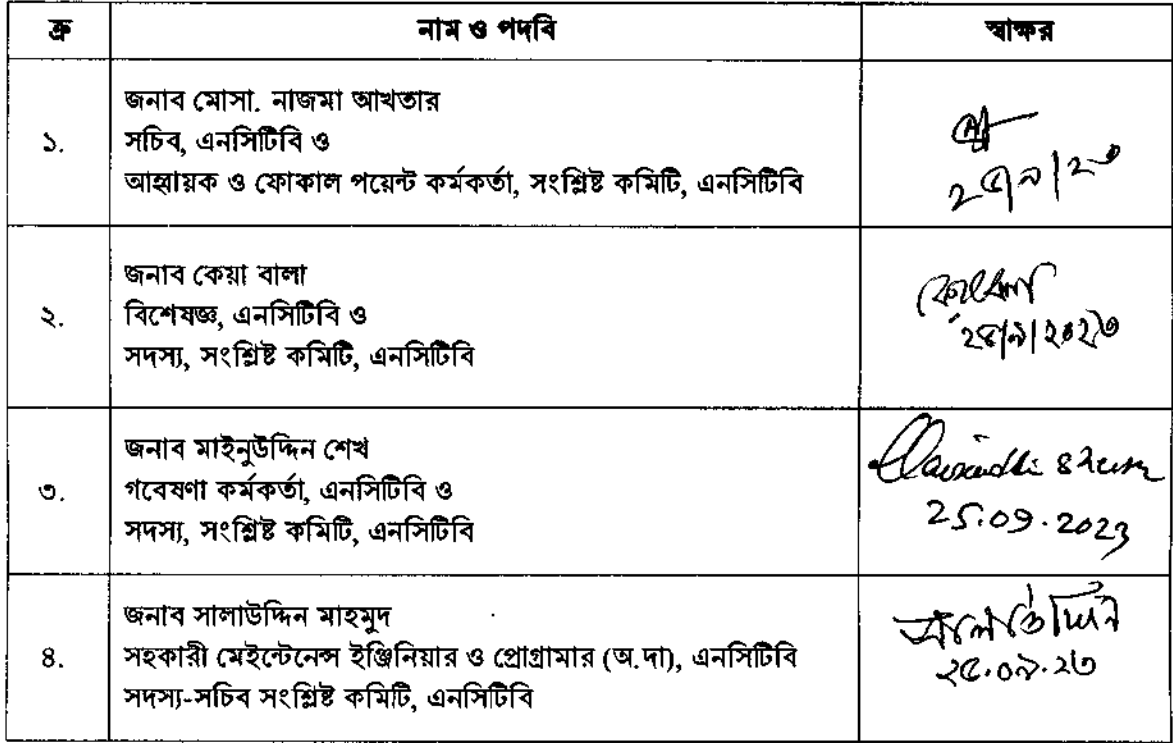 ক্র নাম ও পদবি স্বাক্ষর
জনাব মোসা. নাজমা আখতার
১. সচিব, এনসিটিবি ও
আহ্বায়ক ও ফোকাল পয়েন্ট কর্মকর্তা, সংশ্লিষ্ট কমিটি, এনসিটিবি
২৫/৯/২৩
জনাব কেয়া বালা
২. বিশেষজ্ঞ, এনসিটিবি ও
সদস্য, সংশ্লিষ্ট কমিটি, এনসিটিবি
২৫/৯/২০২৩
জনাব মাইনুউদ্দিন শেখ
৩. গবেষণা কর্মকর্তা, এনসিটিবি ও
সদস্য, সংশ্লিষ্ট কমিটি, এনসিটিবি
25.09.2023
জনাব সালাউদ্দিন মাহমুদ
৪. সহকারী মেইন্টেনেন্স ইঞ্জিনিয়ার ও প্রোগ্রামার (অ.দা), এনসিটিবি
সদস্য-সচিব সংশ্লিষ্ট কমিটি, এনসিটিবি
২৫.০৯.২৩